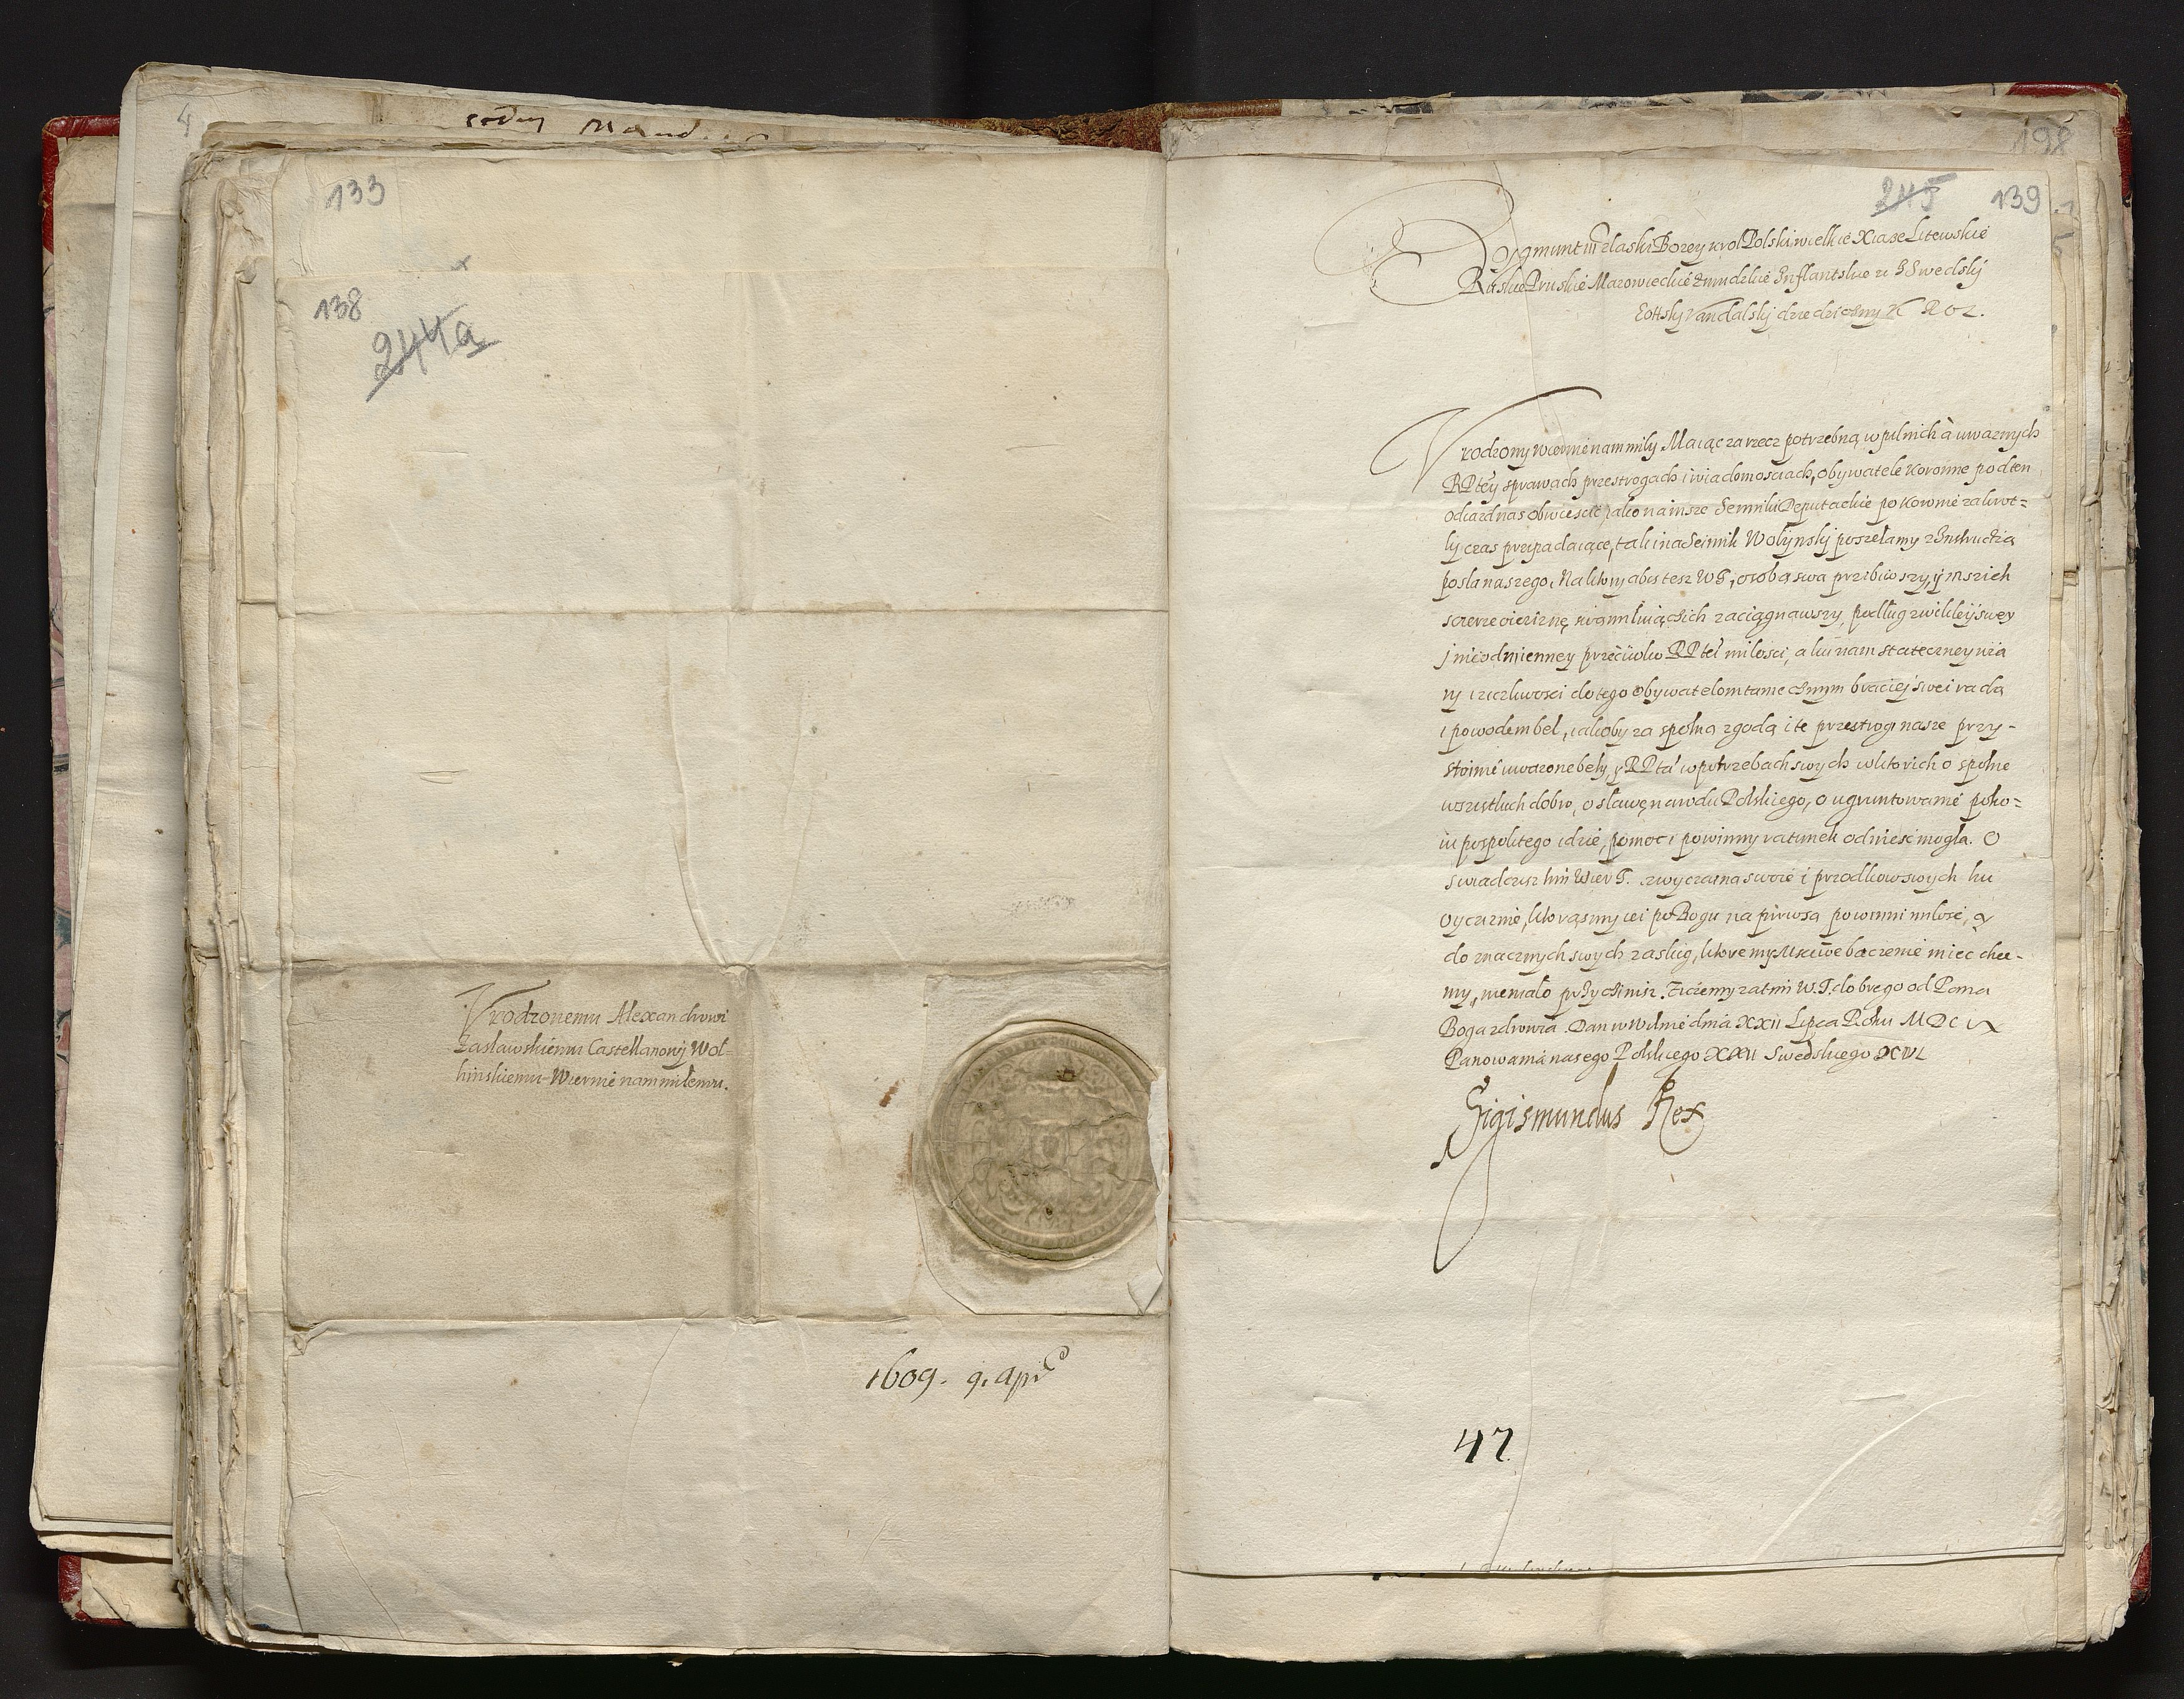 133
138
244a
Vrodzonemu Alexandrowi
Zasławskiemu Castellanowj Wol-
hinskiemu Wiernie nam miłemu.
1609. 9. apr
198
245 139
Zygmunt III z łaski Bozey krol Polski wielkie Xiąze Litewskie
Ruskie Pruskie Mazowieckie Zmudzkie Inflantskie a Swedskj
Gottskj Vandalskj dziedziczny Krol.
Vrodzony wiernie nam miły Maiąc za rzecz potrzebną w pilnich a uwaznych
RPtey sprawach przestrogach i wiadomosciach, Obywatele Koronne pod ten
odiazd nas obwiescic jako na insze Semiki Deputackie po Koronie za krot=
kj czas przipadaiące, tak i na Seimik Wołynskj poszełamy z Instructią
posła naszego. Na ktory abys tesz WT, osobą swą przibiwszy, y inszich
sczerze oiczizną swą miłuiączich zaciągnąwszy, podług zwikłey swey
j nieodmienney przeciwko RPtei milosci, a ku nam stateczney wia
ry i zyczliwosci do tego Obywatelom tamecznym braciej swei radą
i powodem beł, jakoby za społną zgodą i te przestrogi nasze przy-
stoinie uwazone beły, y RPta w potrzebach swych w ktorich o społne
wszistkich dobro, o sławę narodu Polskiego, o ugruntowanie poko=
iu pospolitego idzie, pomoc i powinny ratunek odniesc mogła. O
swiadczisz tim Wier T. zwyczainą swoię i przodkow swych ku
Oycziznie, ktorąsmy iei po Bogu na pirwszą powinni milosc, y
do znacznych swych zasług, ktore my baczenie miec chce-
my, niemało przyczinisz. Ziczemy zatim W.T. dobrego od Pana
Boga zdrowia. Dan w Wilnie dnia XXII Lipca Roku MDCIX
Panowania naszego Polskiego XXII Swedskiego XVI
Sigismundus Rex
47